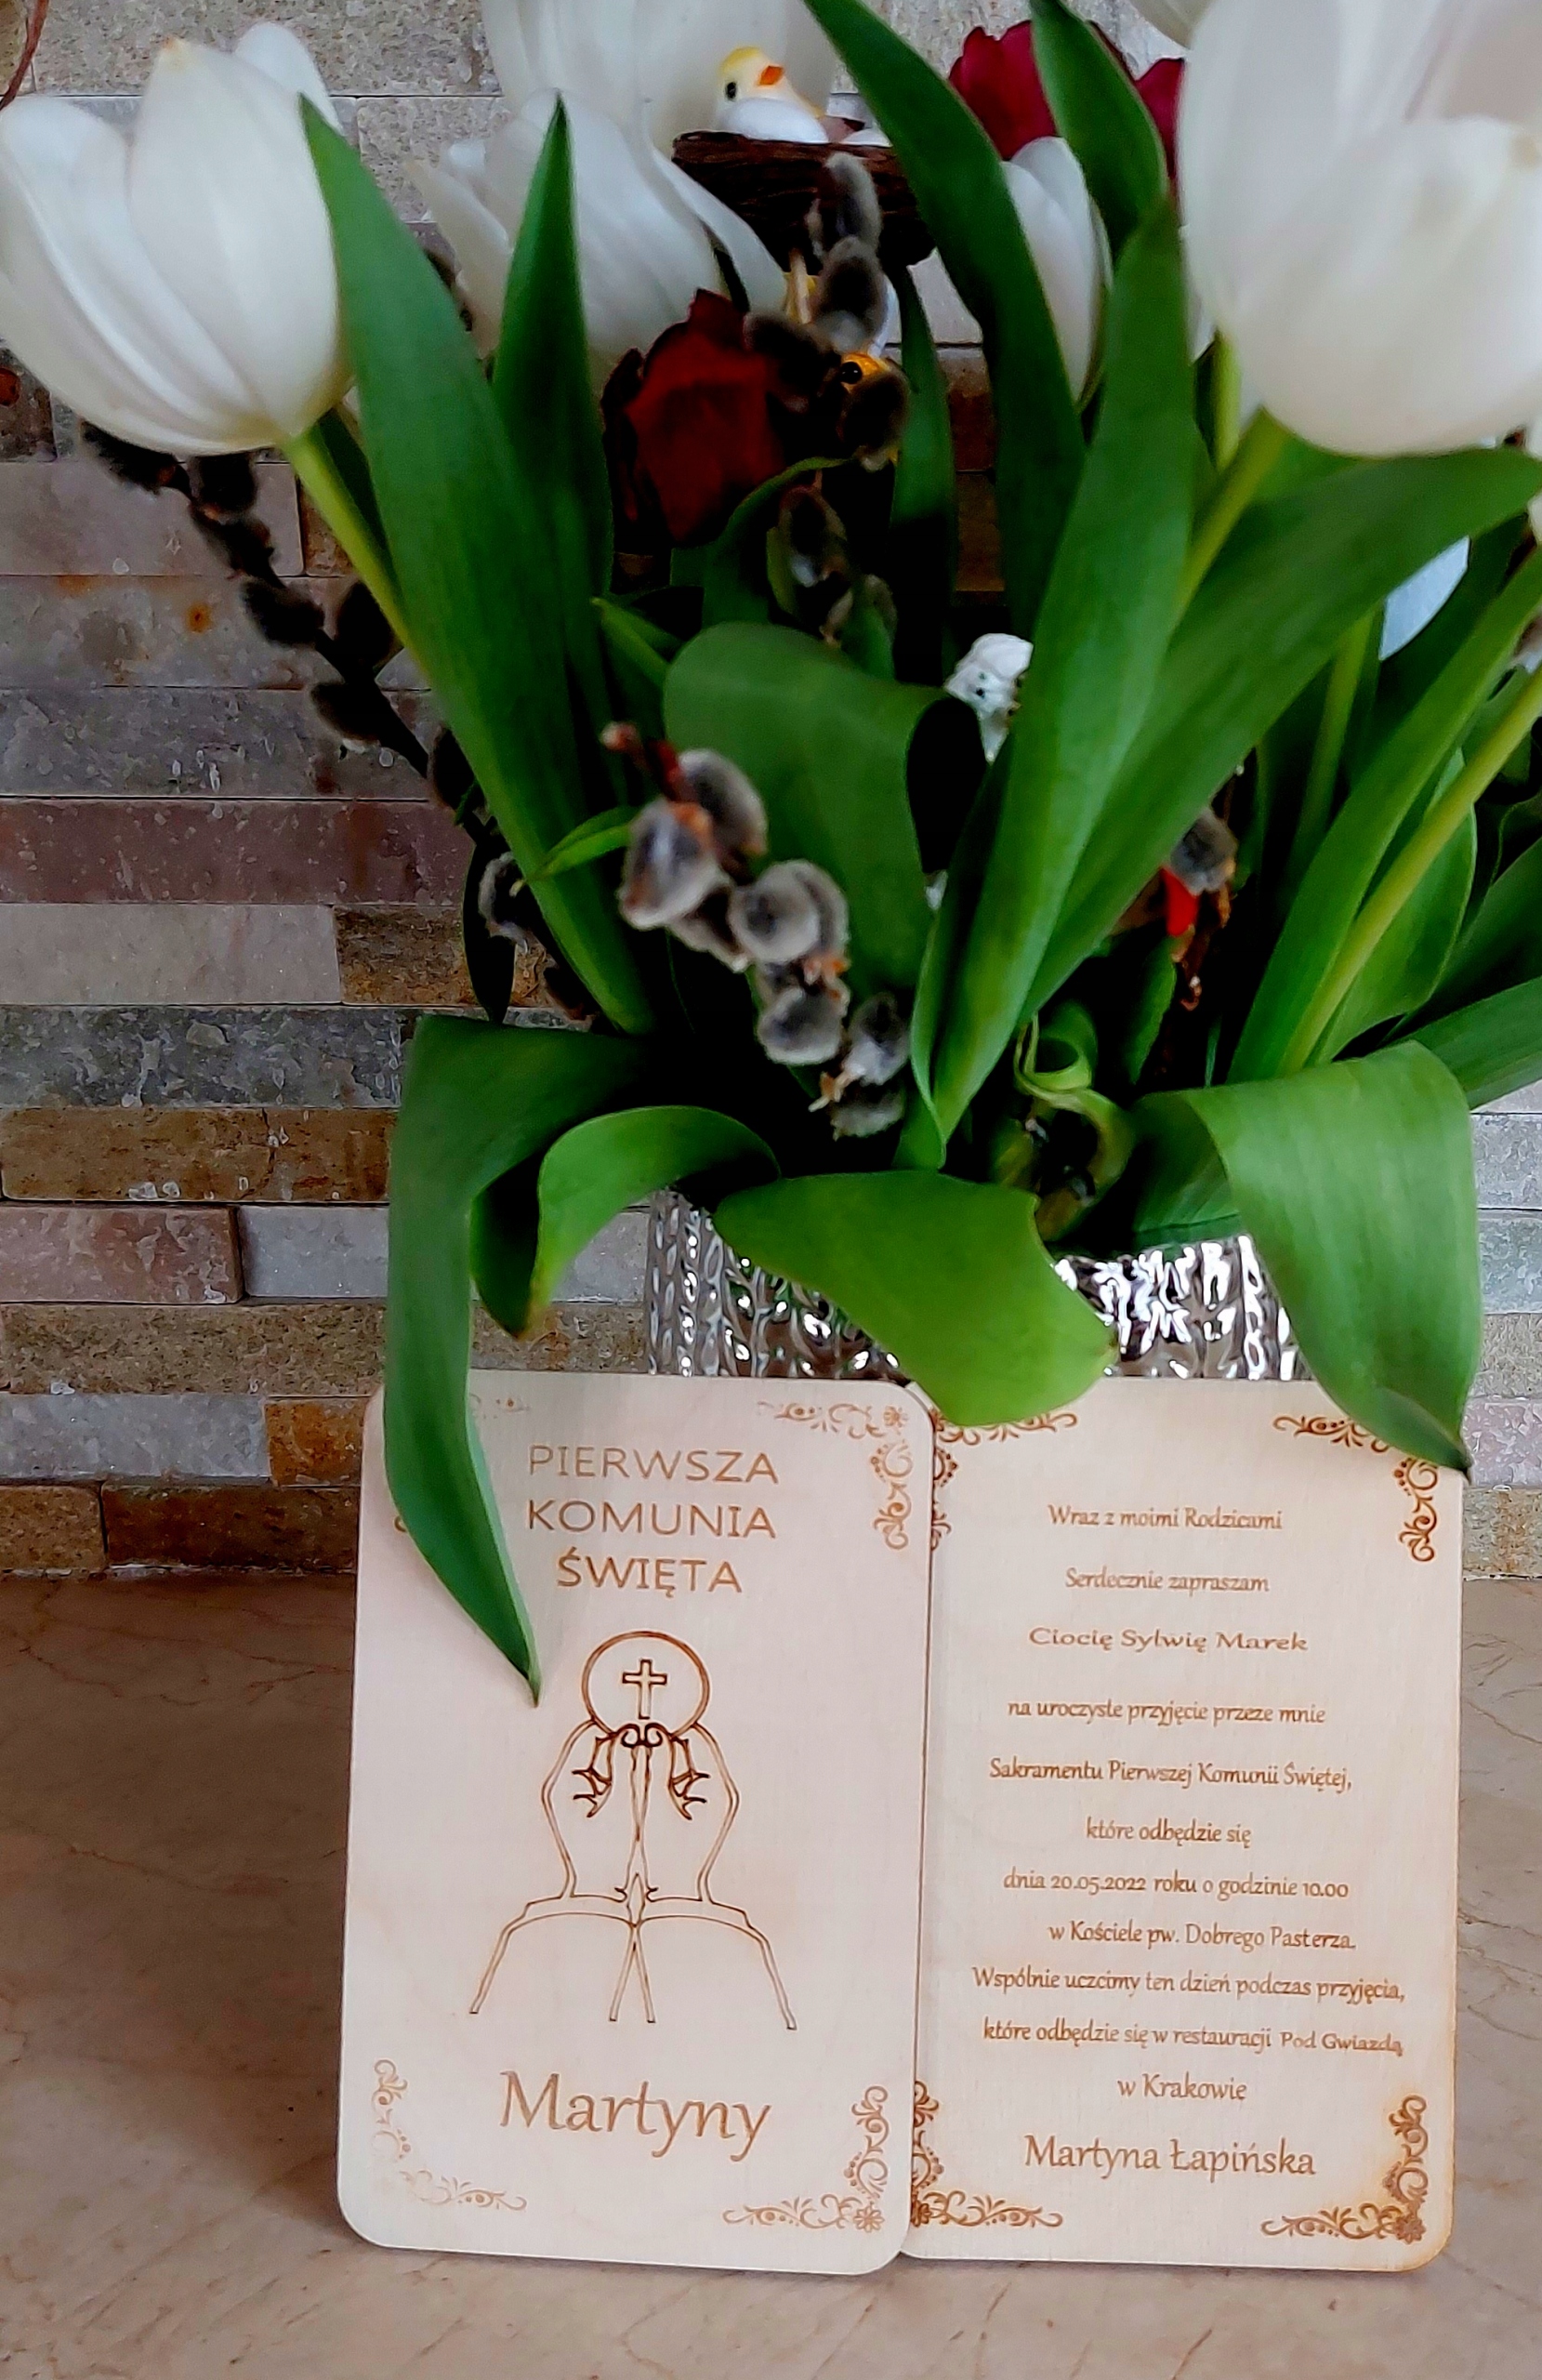 PIERWSZA
KOMUNIA
ŚWIĘTA
Martyny
Wraz z moimi Rodzicami
Serdecznie zapraszam
Ciocię Sylwię Marek
na uroczyste przyjęcie przeze mnie
Sakramentu Pierwszej Komunii Świętej,
które odbędzie się
dnia 20.05.2022 roku o godzinie 10.00
w Kościele pw. Dobrego Pasterza.
Wspólnie uczcimy ten dzień podczas przyjęcia,
które odbędzie się w restauracji Pod Gwiazdą
w Krakowie
Martyna Łapińska